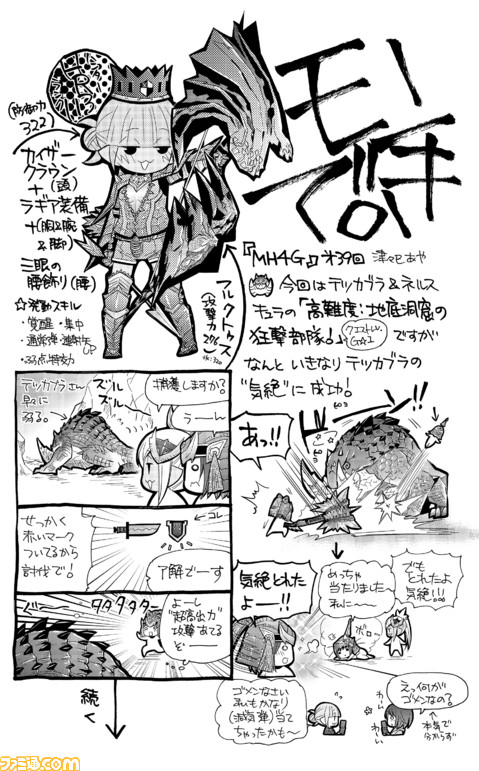 モバイキ
で。
(防御力
322)
カイザー
クラウン
+(頭)
ラギア装備
+(胴&腕
&脚)
三眼の
腰飾り(腰)
☆発動スキル
・覚醒・集中
・通常弾・連射矢
UP
・弱点特効
フルクトゥス
(攻撃力
276)
『MH4G』オ39回
津々巳あや
今回はテツカブラ&ネルス
キュラの「高難度:地底洞窟の
狂撃部隊!」
クエストLV.
G☆2
ですが
なんといきなりテツカブラの
"気絶"に成功!
テツカブラさん
早々に
弱る。
ズル
ズル
捕獲しますか?
うーん
せっかく
赤いマーク
ついてるから
討伐で!
←コレ
了解でーす
ズ
タタタタター
よーし
"超高出力"
攻撃あてる
ぞー
続く
ドーン!!
あっ!!
気絶とれた
よー!!
めっちゃ
当たりました〜
私に〜
でも
とれたよ
気絶!!!
ボロ
ゴメンなさい
私もかなり
(減気弾)当て
ちゃったかも〜
えっ何が
ゴメンなの?
↑本気で
分からず
わぃ
わぃ
ファミ通.com